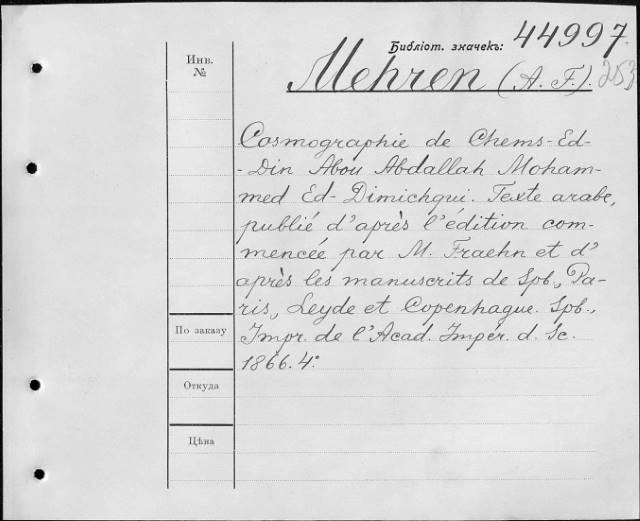 Библіот. значекъ: 44997.
Инв. №
Mehren (A. F.). 253
Cosmographie de Chems-Ed-
-Din Abou Abdallah Moham-
med Ed-Dimichqui. Texte arabe,
publié d'après l'édition com-
mencée par M. Fraehn et d'
après les manuscrits de Spb., Pa-
ris, Leyde et Copenhague. Spb.,
По заказу
Impr. de l'Acad. Impér. d. Sc.
1866. 4°
Откуда
Цѣна